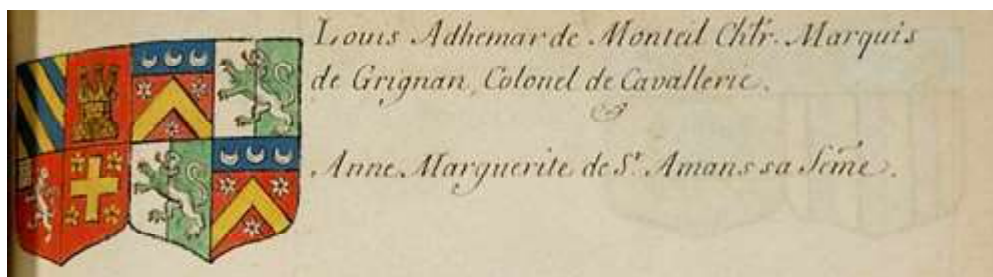 Louis Adhemar de Monteil Chlr. Marquis
de Grignan, Colonel de Cavallerie.
Anne Marguerite de St. Amans sa feme.